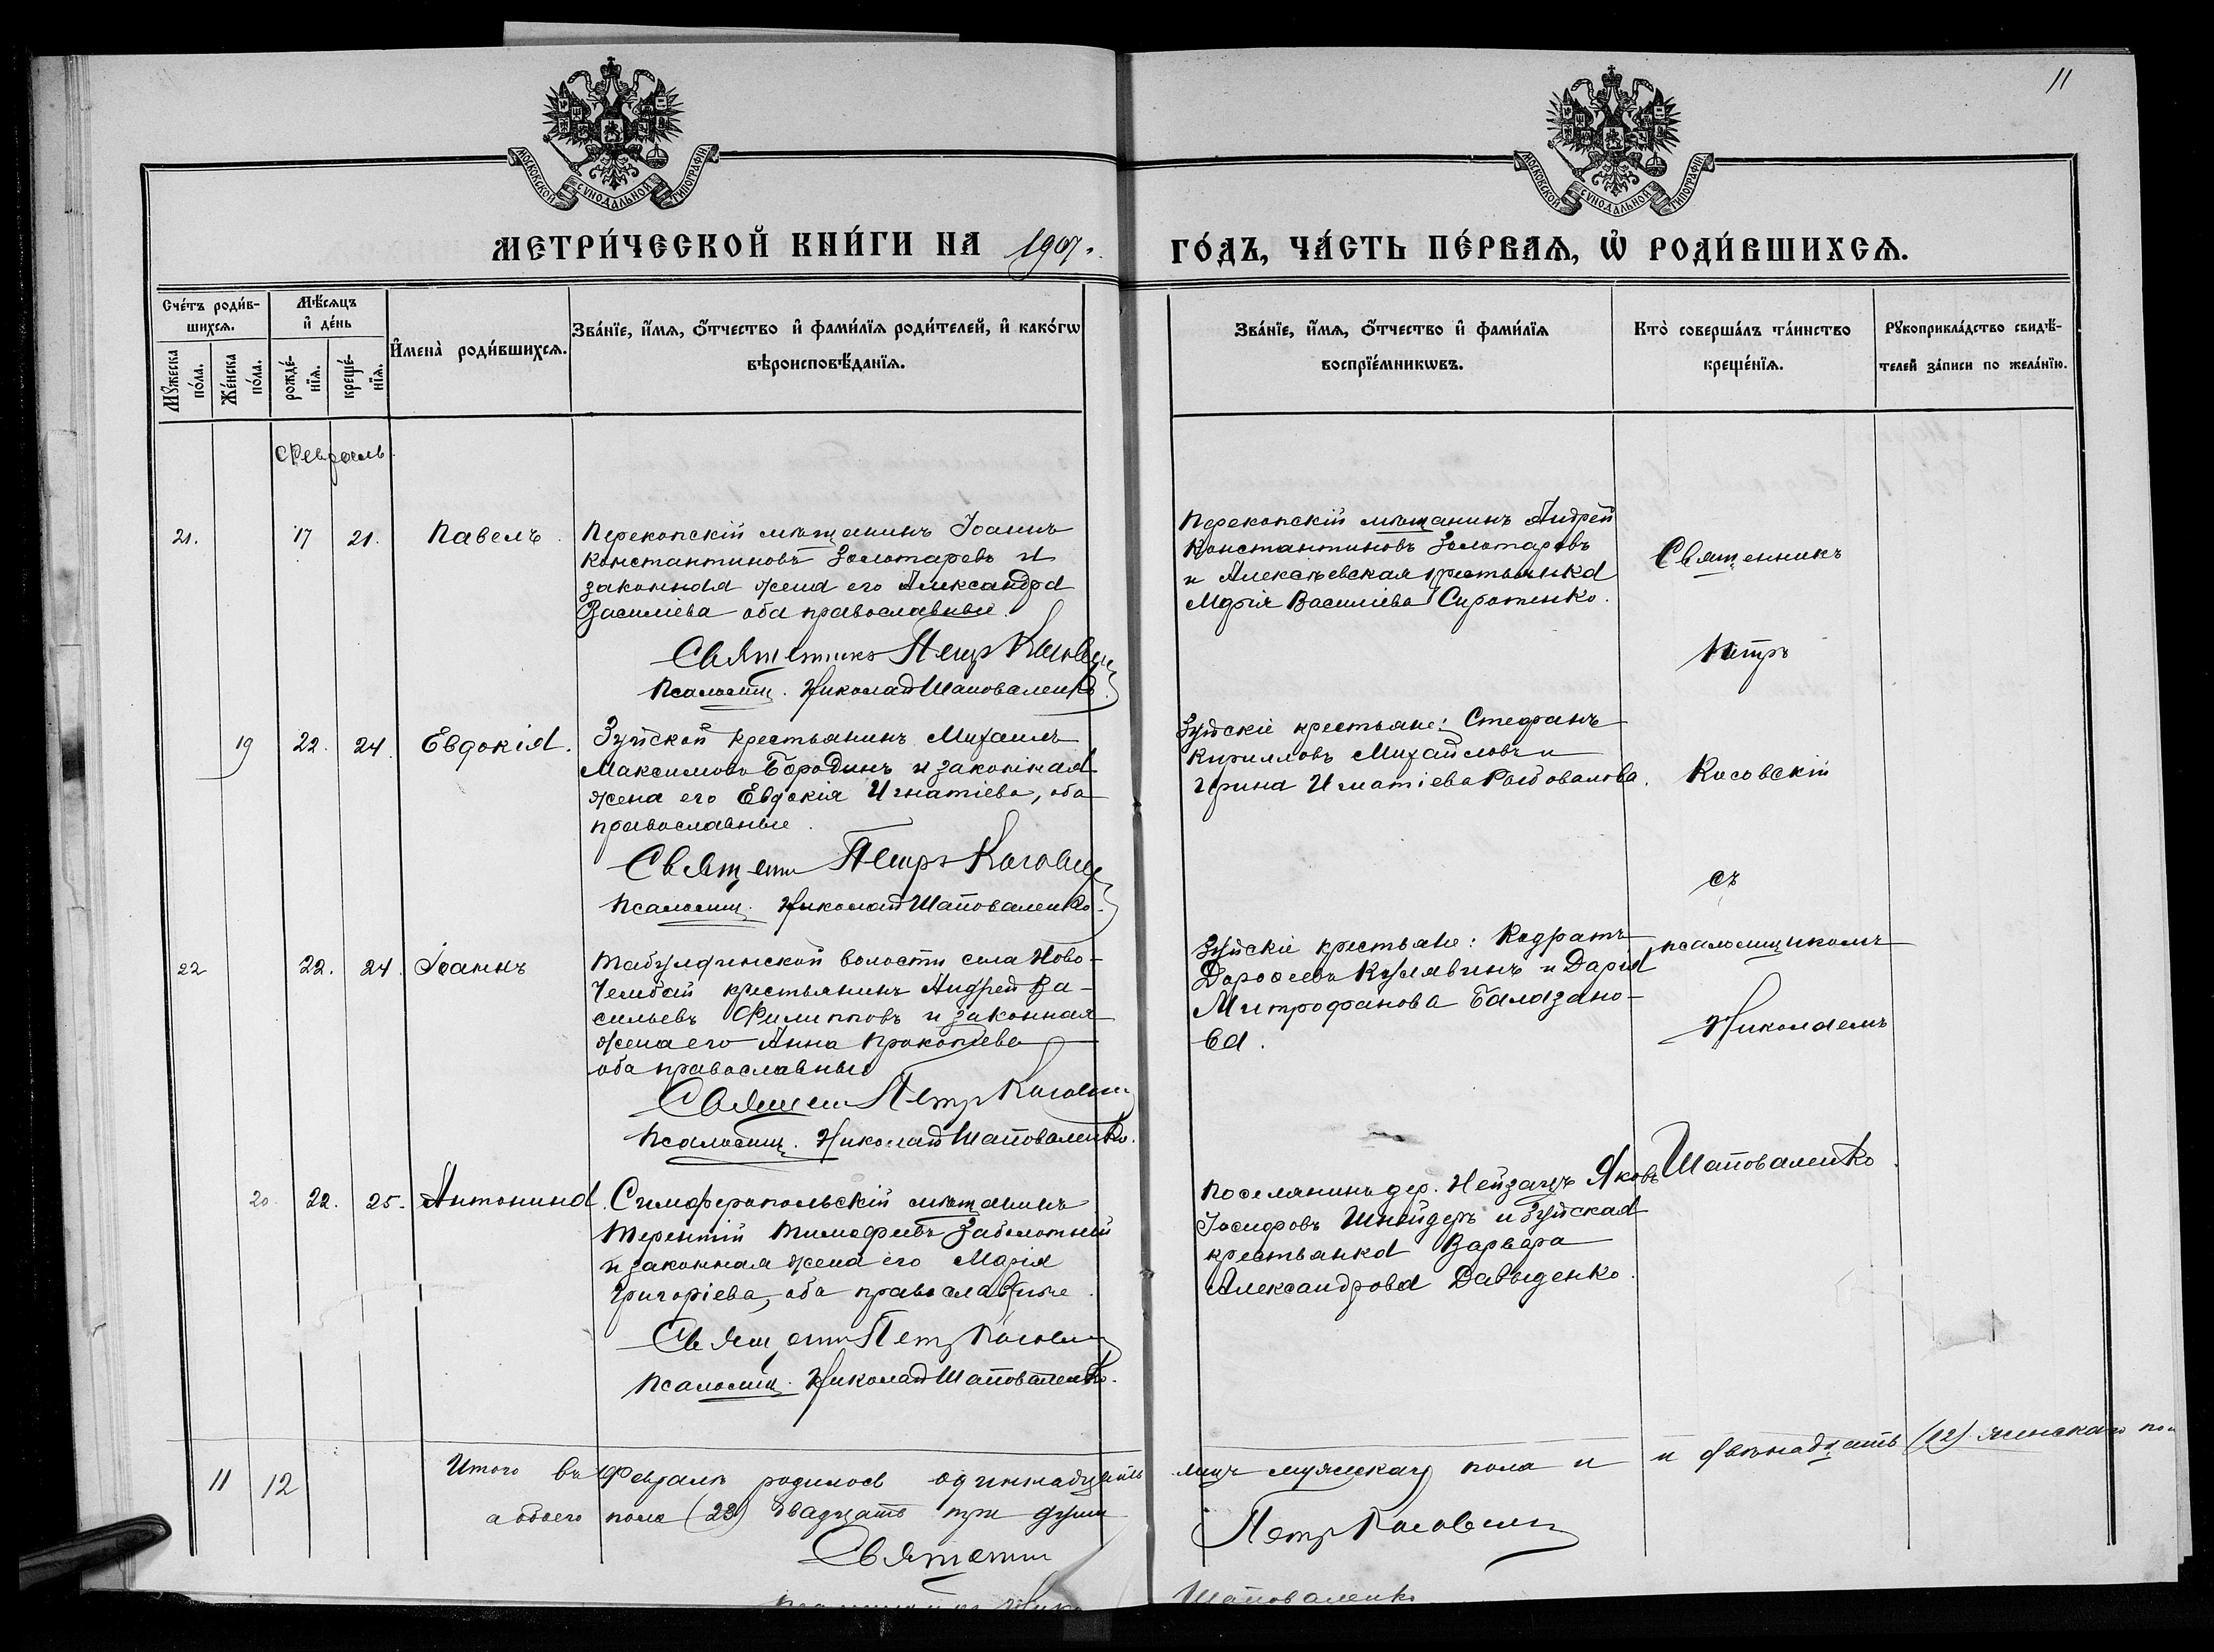 11
МОСКОВСКОЙ СѴНОДАЛЬНОЙ ТИПОГРАФІИ
МОСКОВСКОЙ СѴНОДАЛЬНОЙ ТИПОГРАФІИ
МЕТРИ́ЧЕСКОЙ КНИ́ГИ НА 1907. ГО́ДЪ, ЧА́СТЬ ПЕ́РВАѦ, Ѡ҆ РОДИ́ВШИХСѦ.
Сче́тъ роди́в-
шихсѧ.
Мꙋ́жеска по́ла.
Же́нска по́ла.
Мѣ́сѧцъ
и҆ де́нь
рожде́-
нїѧ.
креще́-
нїѧ.
И҆мена̀ роди́вшихсѧ.
Зва́нїе, и҆́мѧ, ѻ҆́тчество и҆ фами́лїѧ роди́телей, и҆ како́гѡ
вѣроисповѣ́данїѧ.
Зва́нїе, и҆́мѧ, ѻ҆́тчество и҆ фами́лїѧ
воспрїе́мникѡвъ.
Кто̀ соверша́лъ та́инство
креще́нїѧ.
Рꙋкоприкла́дство свидѣ́-
телей за́писи по жела́нїю.
Февраль.
21. 17 21. Павелъ.
Перекопскій мѣщанинъ Іоаннъ
Константиновъ Золотаревъ и
законная жена его Александра
Василіева оба православные.
Священникъ Петръ Косовскій
Псаломщ. Николай Шаповаленко.
Перекопскій мѣщанинъ Андрей
Константиновъ Золотаревъ
и Алексѣевская крестьянка
Марія Василіева Сиротенко.
Священникъ
Петръ
Косовскій
съ
псаломщикомъ
Николаемъ
Шаповаленко.
19 22. 24. Евдокія.
Зуйской крестьянинъ Михаилъ
Максимовъ Бородинъ и законная
жена его Евдокія Игнатіева, оба
православные.
Священ Петръ Косовскій
Псаломщ. Николай Шаповаленко.
Зуйскіе крестьяне: Стефанъ
Кирилловъ Михайловъ и
Ирина Игнатіева
22 22. 24. Іоаннъ
Табулдинской волости села Ново-
Челебай крестьянинъ Андрей Ва-
сильевъ Филипповъ и законная
жена его Анна Прокопіева
оба православные
Священ Петръ Косовскій
Псаломщ. Николай Шаповаленко.
Зуйскіе крестьяне: Кодратъ
Дорофеевъ Кулявинъ и Дарія
Митрофанова Балазано-
ва.
20. 22. 25. Антонина.
Симферопольскій мѣщанинъ
Терентій Тимофеевъ Заболотный
и законная жена его Марія
Григоріева, оба православные.
Священ Петръ Косовскій
Псаломщ. Николай Шаповаленко.
Поселянинъ дер. Нейзацъ Яковъ
Іосифовъ Шнейдеръ и Зуйская
крестьянка Варвара
Александрова Давыденко.
11 12 Итого въ Февралѣ родилось одиннадцать лицъ мужскаго пола и и двѣнадцать (12) женскаго по
а обоего пола (23) двадцать три души
Священн Петръ Косовскій
Шаповаленко